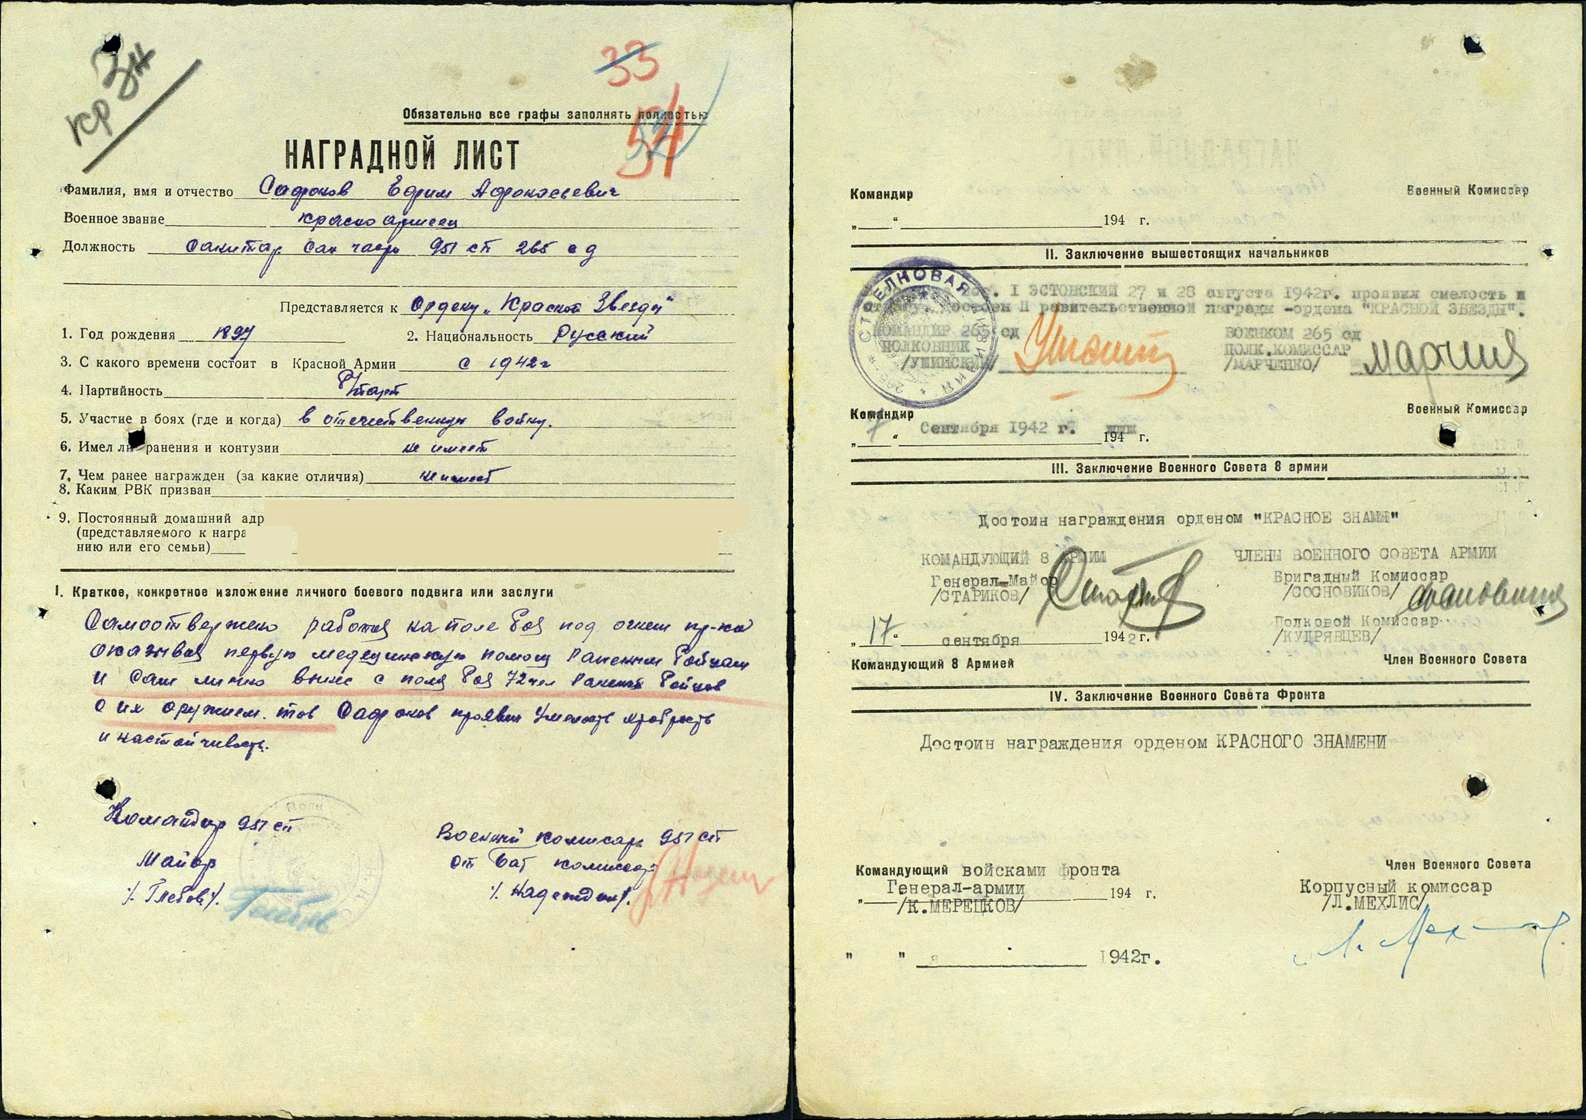 Кр Зн
33
54
Обязательно все графы заполнять полностью
НАГРАДНОЙ ЛИСТ
Фамилия, имя и отчество Сафронов Ефрим
Военное звание красноармеец
Должность Санитар Сан часть 951 сп 265 с д
Представляется к Ордену "Красной Звезды"
1. Год рождения 1897 2. Национальность Русский
3. С какого времени состоит в Красной Армии с 1942 г
4. Партийность б/парт
5. Участие в боях (где и когда) в отечественную войну.
6. Имел ли ранения и контузии не имеет
7. Чем ранее награжден (за какие отличия) не имеет
8. Каким РВК призван
9. Постоянный домашний адр
(представляемого к награ
нию или его семьи)
I. Краткое, конкретное изложение личного боевого подвига или заслуги
Самоотвержено работая на поле боя под огнем пр-ка
оказывая первую медецинскую помощь раненым бойцам
и сам лично вынес с поля боя 72 чел раненых бойцов
с их оружием. тов Сафронов проявил храбрость
и настойчивость.
Командир 951 сп
Майор
/Глебов/.
Военный комисар 951 сп
ст бат комиссар
Командир Военный Комиссар
„ “ 194 г.
II. Заключение вышестоящих начальников
I ЭСТОНСКИЙ 27 и 28 августа 1942г. проявил смелость и
достоен II равительственной награды -ордена "КРАСНОЙ ЗВЕЗДЫ".
СТРЕЛКОВАЯ ДИВИЗИЯ
КОМАНДИР 265 сд
ПОЛКОВНИК
/УШИНСКИЙ/
ВОЕНКОМ 265 сд
ПОЛК.КОМИССАР
/МАРЧЕНКО/
Командир Военный Комиссар
„7“ Сентября 1942 г. 194 г.
III. Заключение Военного Совета 8 армии
Достоин награждения орденом "КРАСНОЕ ЗНАМЯ"
КОМАНДУЮЩИЙ 8 АРМИИ
Генерал-Майор
/СТАРИКОВ/
ЧЛЕНЫ ВОЕННОГО СОВЕТА АРМИИ
Бригадный Комиссар
/СОСНОВИКОВ/
Полковой Комиссар
/КУДРЯВЦЕВ/
„17“ сентября 1942 г.
Командующий 8 Армией Член Военного Совета
IV. Заключение Военного Совета Фронта
Достоин награждения орденом КРАСНОГО ЗНАМЕНИ
Командующий войсками фронта
Генерал-армии
„ 194 г.
/К.МЕРЕЦКОВ/
Член Военного Совета
Корпусный комиссар
/Л.МЕХЛИС/
" " 1942г.